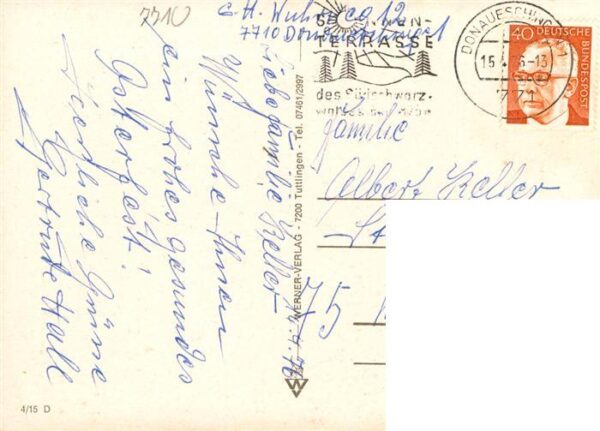 7710
7710 Donaueschingen
Liebe Familie Keller
14.4.76
Wünsche Ihnen
ein frohes gesundes
Osterfest!
Herzliche Grüße
Gertrude Hall
SONNEN-
TERRASSE
des Südschwarz-
waldes
DONAUESCHINGEN
15.4.76-13
771
40
DEUTSCHE
BUNDESPOST
Familie
Albert Keller
75
WERNER-VERLAG - 7200 Tuttlingen - Tel. 07461/2997
W
4/15 D